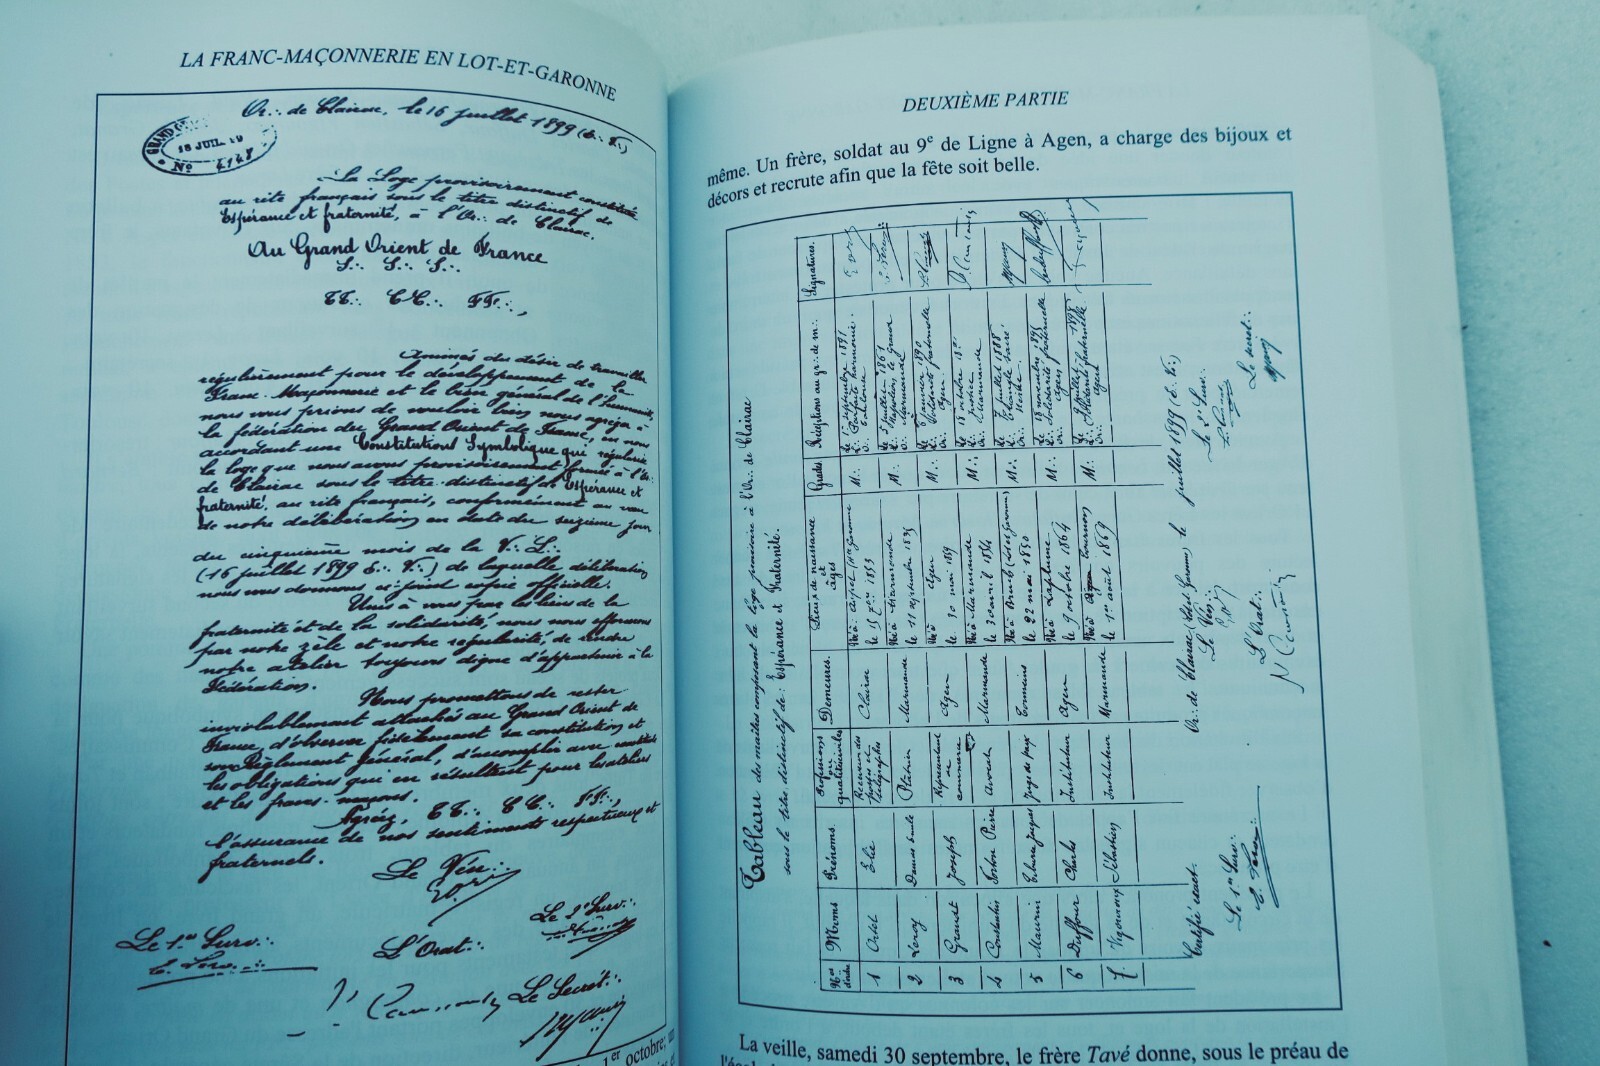 LA FRANC-MAÇONNERIE EN LOT-ET-GARONNE
Or∴ de Clairac, le 16 juillet 1899 (è∴ v∴)
GRAND OR
18 JUIL. 19
No 4148
La Loge provisoirement constituée
au rite français sous le titre distinctif de
Espérance et fraternité, à l'Or∴ de Clairac.
Au Grand Orient de France
S∴ S∴ S∴
TT∴ CC∴ FF∴,
Animés du désir de travailler
régulièrement pour le développement de la
Franc-Maçonnerie et le bien général de l'humanité,
nous vous prions de vouloir bien nous agréer à
la fédération du Grand Orient de France, en nous
accordant une Constitution Symbolique qui régularise
la loge que nous avons provisoirement formée à l'Or∴
de Clairac sous le titre distinctif de Espérance et
fraternité, au rite français, conformément au vœu
de notre délibération en date du seizième jour
du cinquième mois de la V∴ L∴
(16 juillet 1899 è∴ v∴) de laquelle délibération
nous vous donnons ci-joint copie officielle.
Unis à vous par les liens de la
fraternité et de la solidarité, nous nous efforcerons
par notre zèle et notre régularité, de rendre
notre atelier toujours digne d'appartenir à la
Fédération.
Nous promettons de rester
inviolablement attachés au Grand Orient de
France, d'observer fidèlement sa constitution et
son Règlement Général, d'accomplir avec
les obligations qui en résultent pour les ateliers
et les francs-maçons.
Agréez, TT∴ CC∴ FF∴,
l'assurance de nos sentiments respectueux et
fraternels.
Le Vén∴
Le 1er Surv∴
L'Orat∴
Le 2e Surv∴
Le Secrét∴
1er octobre; un
DEUXIÈME PARTIE
même. Un frère, soldat au 9e de Ligne à Agen, a charge des bijoux et
décors et recrute afin que la fête soit belle.
Tableau de maîtres composant la loge provisoire à l'Or∴ de Clairac
sous le titre distinctif de: Espérance et Fraternité.
Nos d'ordre Noms Prénoms. Professions ou qualités civiles Demeures. Lieux de naissance et âges Grades Réceptions au gr∴ de m∴ Signatures.
1 Elie Receveur des postes et télégraphes Clairac le 15 1853 M∴ le 1er septembre 1891
2 Leroy Platrier Marmande Né à Marmande le 11 septembre 1835 M∴ le 5 juillet 1861 Marmande
3 Joseph Représentant de commerce Agen Né à Agen le 30 mai 1859 M∴ 1890 Solidarité fraternelle Agen
4 Pierre Avocat Marmande Né à Marmande le 30 avril 1854 M∴ le 18 octobre Justice Marmande
5 Maurin Jacques Juge de paix Tonneins le 22 mai 1850 M∴ le 7 juillet 1888
6 Duffour Charles Instituteur Agen Né à Laplume le 9 octobre 1864 M∴ le 18 novembre 1895 Solidarité fraternelle Agen
7. Vigouroux Sébastien Instituteur Marmande Né à Tournon le 1er août 1869 M∴ le 9 juillet 1898 Solidarité fraternelle Agen
Certifié exact. Or∴ de Clairac (Lot et Garonne) le juillet 1899 (è∴ v∴)
Le 1er Surv∴ Le Vén∴ Le 2e Surv∴
L'Orat∴ Le secrét∴
La veille, samedi 30 septembre, le frère Tavé donne, sous le préau de